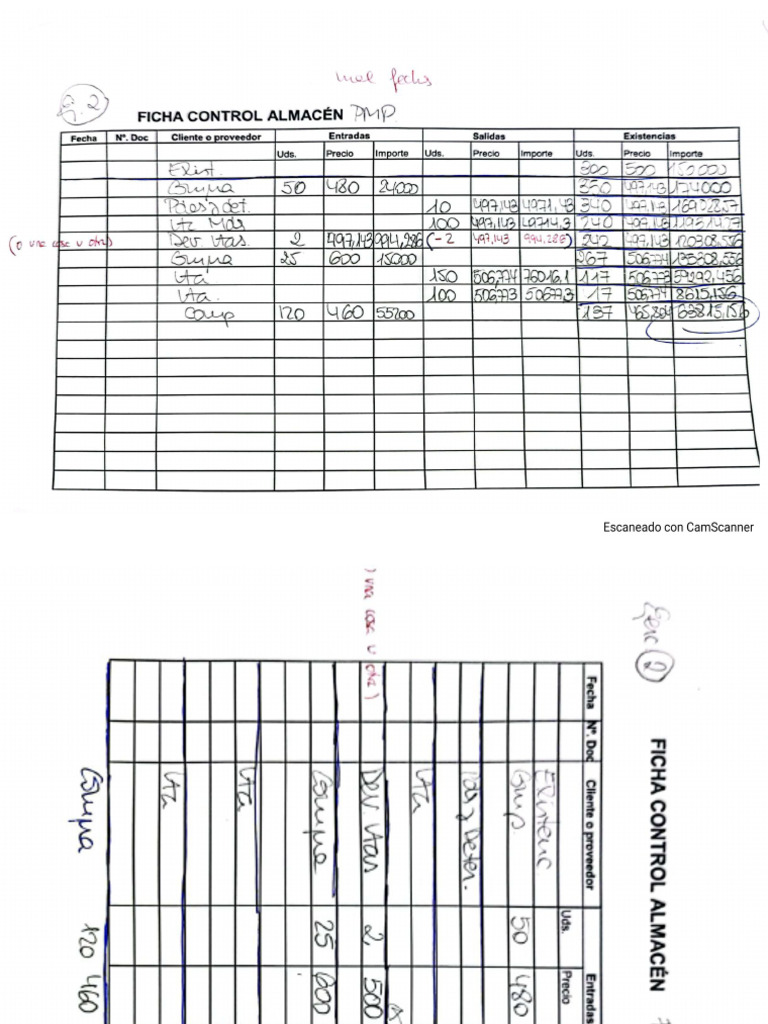 mal fecha
Ej. 2
FICHA CONTROL ALMACÉN PMP
Fecha Nº. Doc Cliente o proveedor Entradas Salidas Existencias
Uds. Precio Importe Uds. Precio Importe Uds. Precio Importe
Exist. 300 500 150000
Compra 50 480 24000 350 497,143 174000
Pdas y det. 10 497,143 4971,43 340 497,143
Vta Mds 100 497,143 49714,3 240 497,143
(o una cosa u otra) Dev. Vtas. 2 497,143 994,286 (-2 497,143 994,286) 242 497,143 120308,556
Compra 25 600 15000 267 506,774 135308,556
Vta 150 506,774 76016,1 117 506,773 59292,456
Vta. 100 50,6773 50677,3 17 506,774 8615,156
Comp 120 460 55200 137 465,804 63815,156
Escaneado con CamScanner
Ejerc 2
FICHA CONTROL ALMACÉN
Fecha Nº. Doc Cliente o proveedor Entradas
Uds. Precio
Existenc
Comp. 50 480
Pdas y Deter.
Vta
) una cosa u otra) Dev. Vtas 2 500
Compra 25 600
Vta
Vta
Compra 120 460